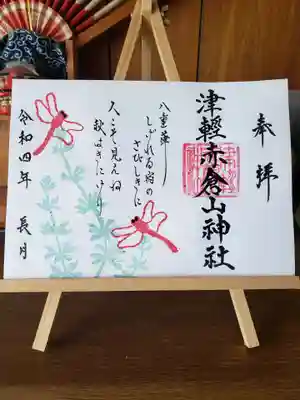 奉拝
津軽赤倉山神社
八重葎
しげれる宿の
さびしきに
人こそ見えね
秋はきにけり
令和四年 長月